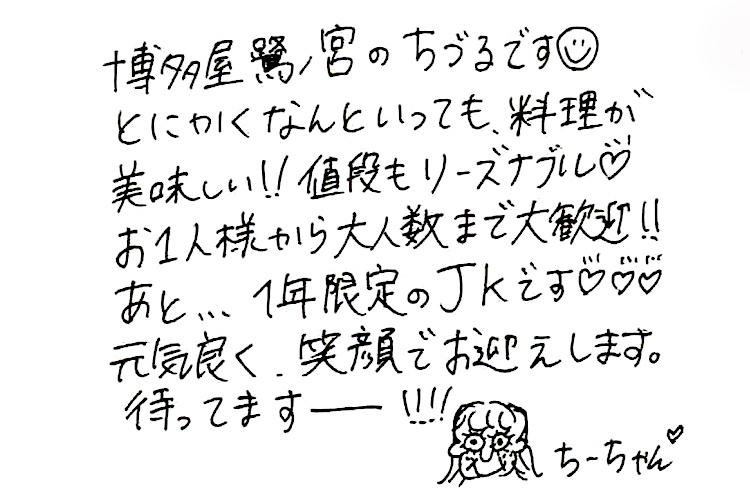 博多屋鷺ノ宮のちづるです☺
とにかくなんといっても、料理が
美味しい!! 値段もリーズナブル♡
お1人様から大人数まで大歓迎!!
あと... 1年限定のJKです♡♡♡
元気良く、笑顔でお迎えします。
待ってますー!!!!
ちーちゃん♡